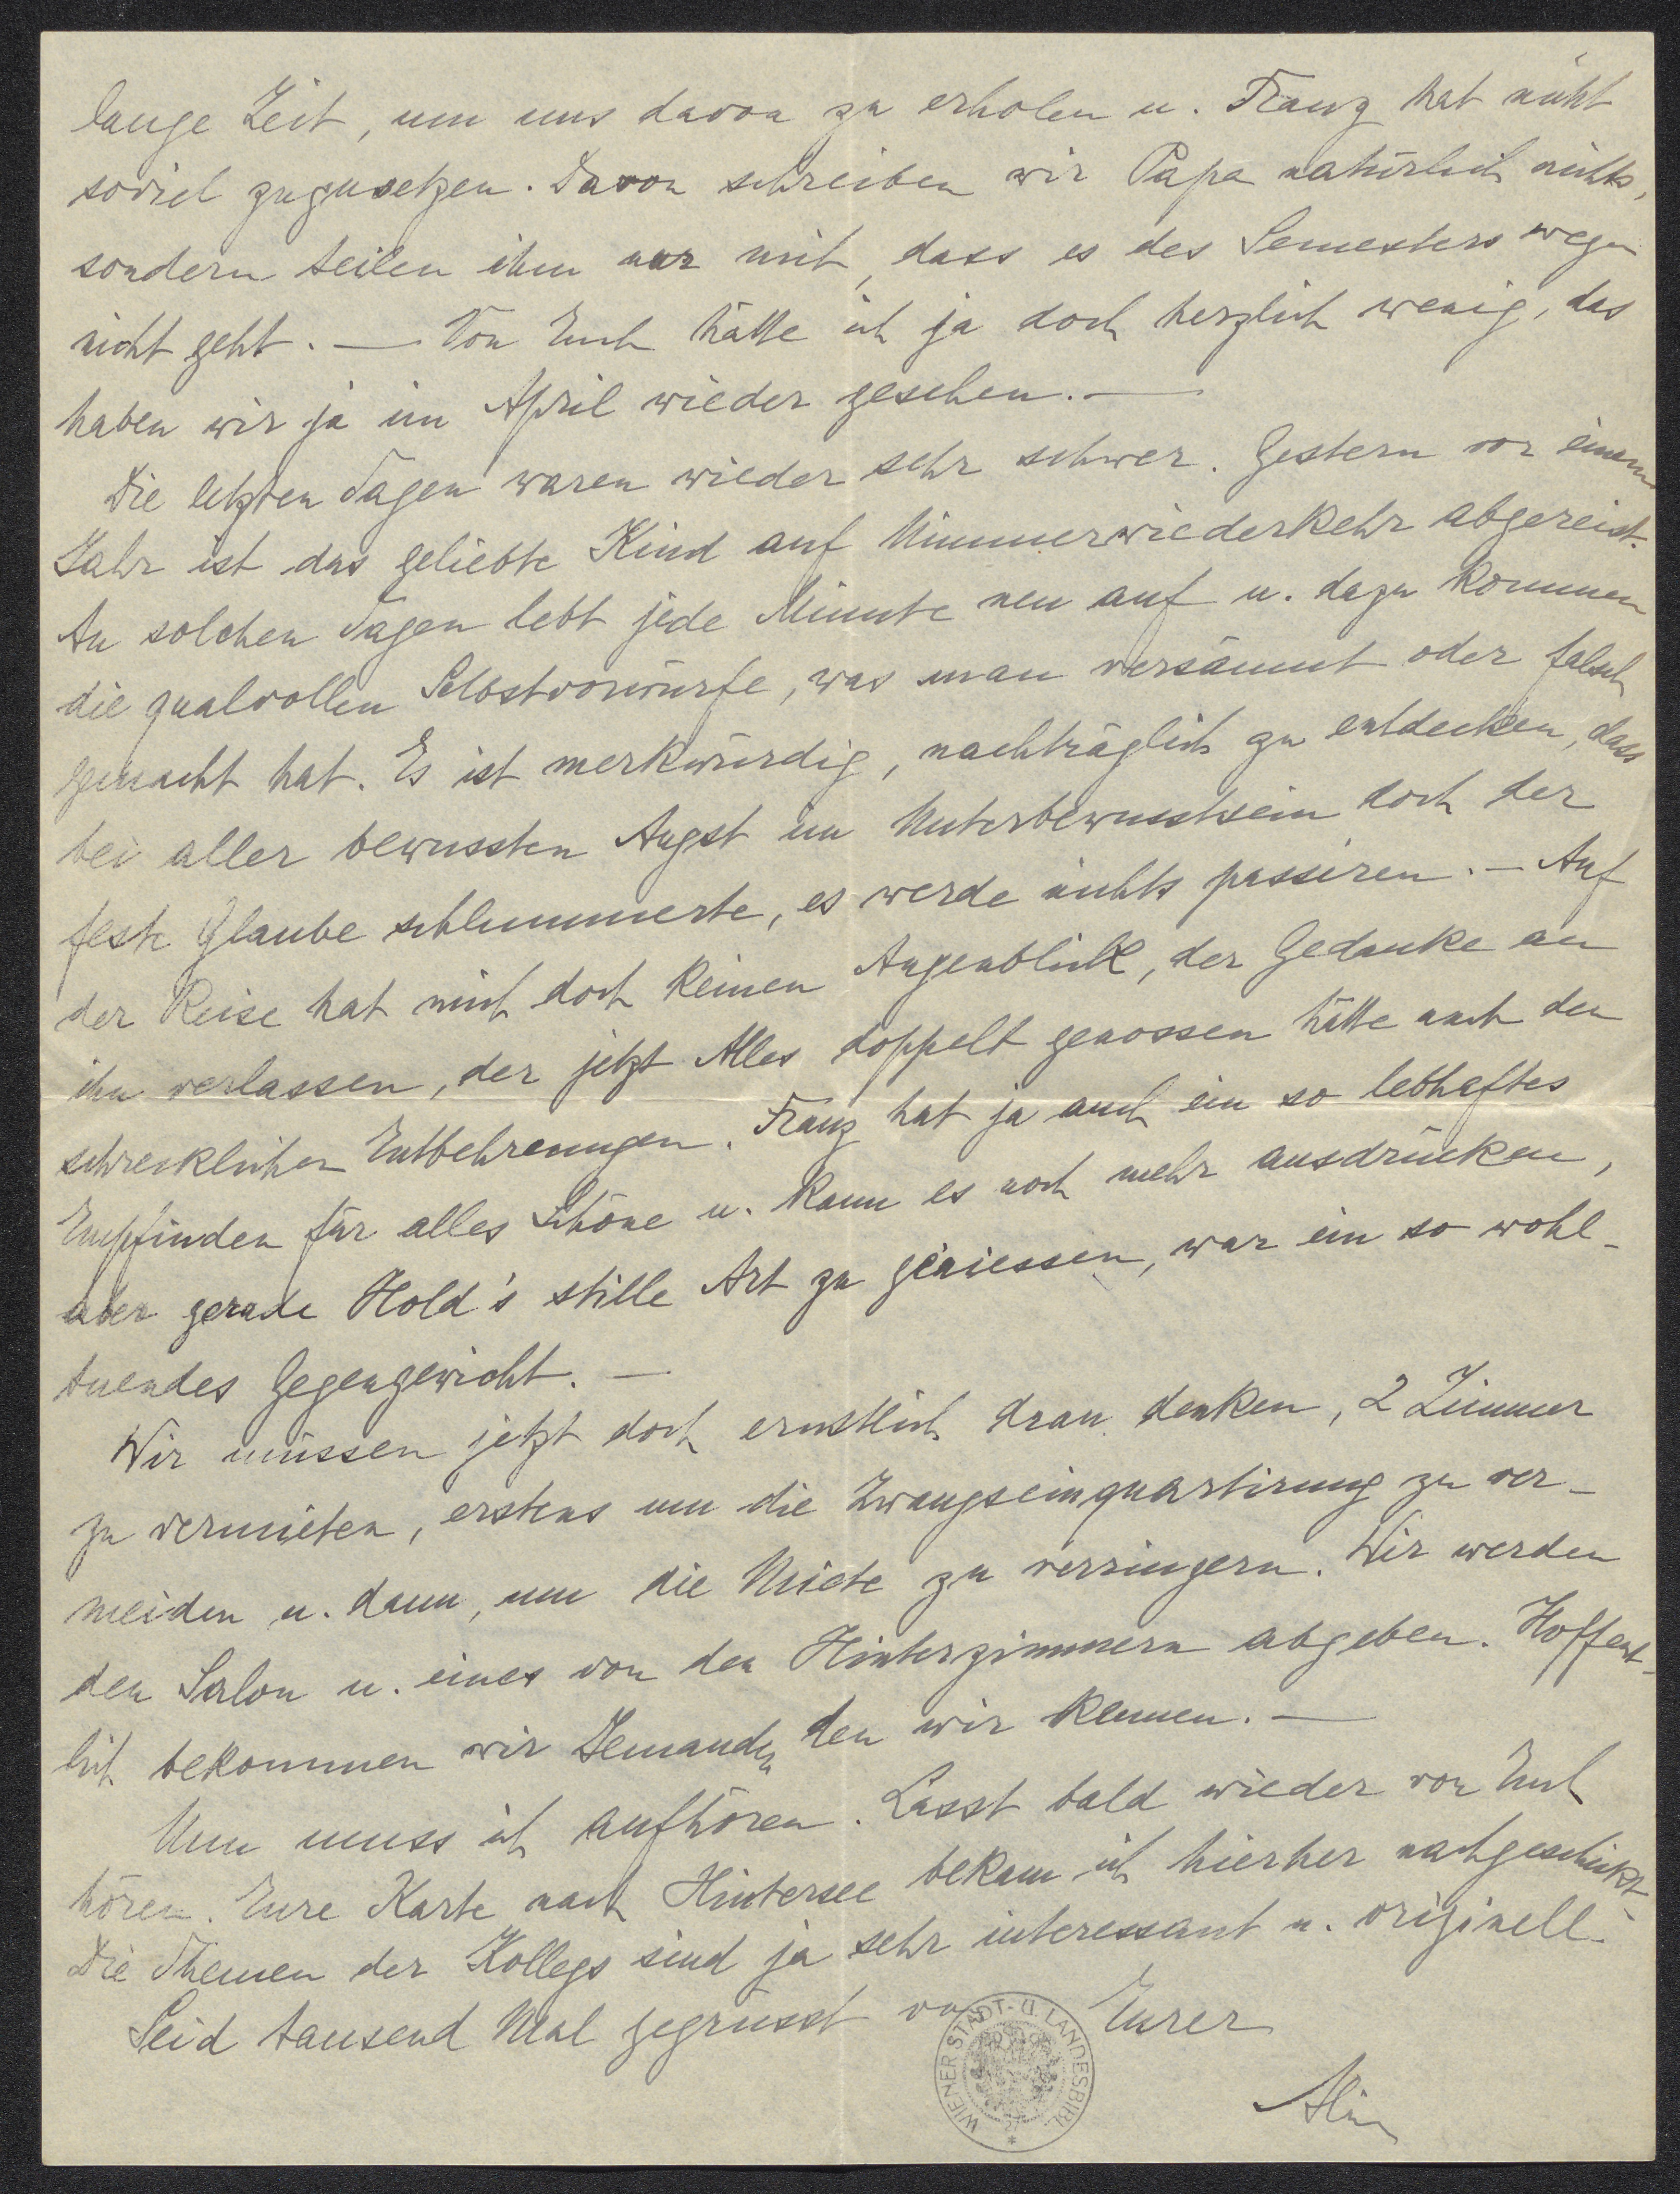 lange Zeit, um uns davon zu erholen u. Franz hat nicht
soviel zuzusetzen. Davon schreiben wir Papa natürlich nichts,
sondern teilen ihm nur mit, dass es des Semesters wegen
nicht geht. — Von Euch hätte ich ja doch herzlich wenig, das
haben wir ja im April wieder gesehen. —
Die letzten Tagen waren wieder sehr schwer. Gestern vor einem
Jahr ist das geliebte Kind auf Nimmerwiederkehr abgereist.
An solchen Tagen lebt jede Minute neu auf u. dazu kommen
die qualvollen Selbstvorwürfe, was man versäumt oder falsch
gemacht hat. Es ist merkwürdig, nachträglich zu entdecken, dass
bei aller bewussten Angst im Unterbewusstsein doch der
feste Glaube schlummerte, es werde nichts passiren. — Auf
der Reise hat mich doch keinen Augenblick, der Gedanke an
ihn verlassen, der jetzt Alles doppelt genossen hätte nach den
schrecklichen Entbehrungen. Franz hat ja auch ein so lebhaftes
Empfinden für alles Schöne u. kann es noch mehr ausdrücken,
aber gerade Hold's stille Art zu geniessen, war ein so wohl-
tuendes Gegengewicht. —
Wir müssen jetzt doch ernstlich dran denken, 2 Zimmer
zu vermieten, erstens um die Zwangseinquartirung zu ver-
meiden u. dann, um die Miete zu verringern. Wir werden
den Salon u. eines von den Hinterzimmern abgeben. Hoffent-
lich bekommen wir Jemanden, den wir kennen. —
Nun muss ich aufhören. Lasst bald wieder von Euch
hören. Eure Karte nach Hintersee bekam ich hierher nachgeschickt.
Die Themen der Kollegs sind ja sehr interessant u. originell.
Seid tausend Mal gegrüsst von Eurer
WIENER STADT- U. LANDESBIBL.
Alin